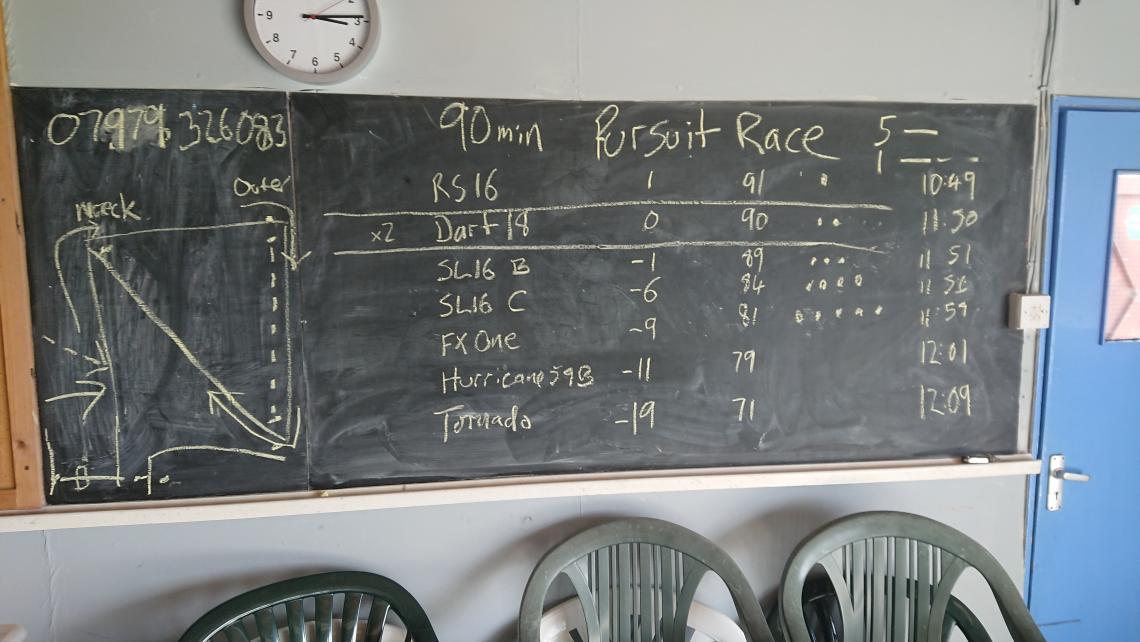 9
8
7
6
5
4
3
2
07979 326083
90min Pursuit Race 5 —
1 — - -
RS16 1 91 10:49
x2 Dart 18 0 90 11:50
SL16 B -1 89 11 51
SL16 C -6 84 11 56
FX One -9 81 11 59
Hurricane 59B -11 79 12:01
Tornado -19 71 12:09
Outer